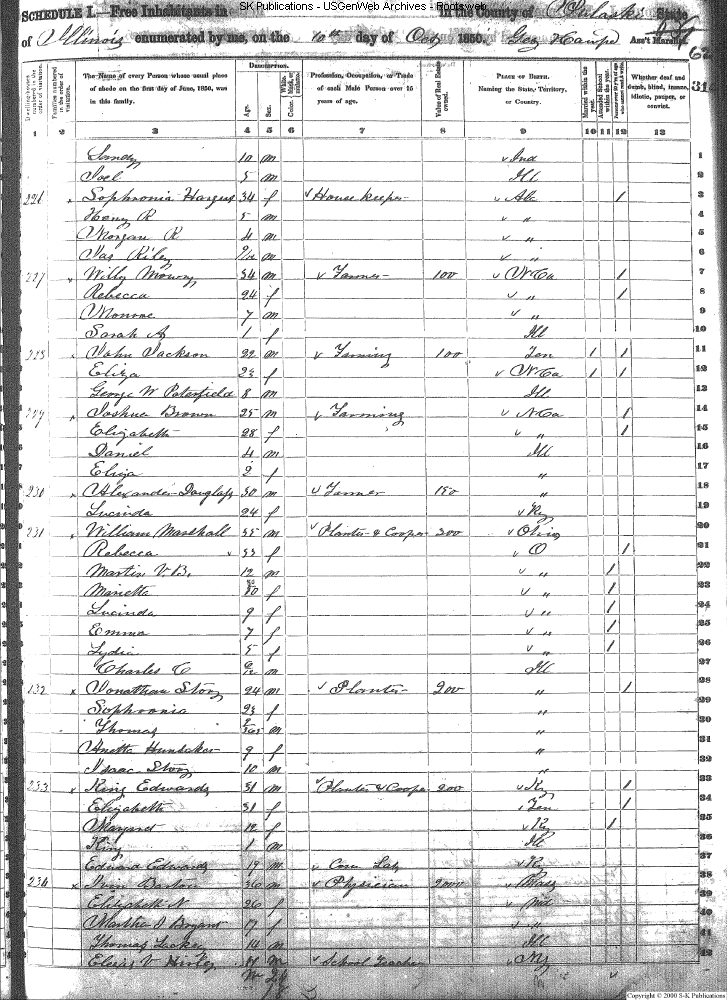 SK Publications - USGenWeb Archives - Rootsweb
SCHEDULE I.—Free Inhabitants in in the County of Pulaski State
of Illinois enumerated by me, on the 10th day of Oct 1850. Ass't Marshal.
Dwelling-houses numbered in the order of visitation. Families numbered in the order of visitation. The Name of every Person whose usual place of abode on the first day of June, 1850, was in this family. DESCRIPTION. Age. Sex. Color, White, black, or mulatto. Profession, Occupation, or Trade of each Male Person over 15 years of age. Value of Real Estate owned. PLACE OF BIRTH. Naming the State, Territory, or Country. Married within the year. Attended School within the year. Persons over 20 y'rs of age who cannot read & write. Whether deaf and dumb, blind, insane, idiotic, pauper, or convict. 31
1 2 3 4 5 6 7 8 9 10 11 12 13
Sandy 10 m Ind 1
Joel 5 m Ill 2
226 Sophronia Hargus 34 f House keeper Ala / 3
Henry R 5 m " 4
Morgan R 4 m " 5
Jas Riley m " 6
227 Willy Mowry 34 m Farmer 100 N Ca / 7
Rebecca 24 f " / 8
Monroe 7 m " 9
Sarah A 1 f Ill 10
228 John Jackson 22 m Farming 100 Ten 1 / 11
Eliza 23 f N Ca 1 / 12
George W Poterfield 8 m Ill 13
229 Joshua Brown 25 m Farming N Ca / 14
Elizabeth 28 f " / 15
Daniel 4 m Ill 16
Eliza 2 f " 17
230 Alexander Douglass 30 m Farmer 150 " 18
Lucinda 24 f Ky 19
231 William Marshall 35 m Planter & Cooper 300 Ohio 20
Rebecca 33 f O / 21
Martin V. B. 12 m " / 22
Marietta 10 f " / 23
Lucinda 9 f " / 24
Emma 7 f " / 25
Lydia 5 f " / 26
Charles C m Ill 27
132 Jonathan Story 24 m Planter 200 " / 28
Sophronia 23 f " 29
Thomas m " 30
Anetta Hunsaker 9 f " 31
Isaac Story 10 m " 32
233 King Edwards 31 m Planter & Cooper 200 Ky / 33
Elizabeth 31 f Ten / 34
Margaret 12 f Ky / 35
King 1 m Ill 36
Edward Edwards 19 m Ky 37
234 Barton 36 m Physician 2000 38
Elizabeth N 26 f 39
Martha J Bryant 17 f " 40
Thomas 14 m Ill 41
m School Teacher NY 42
Copyright © 2000 S-K Publications